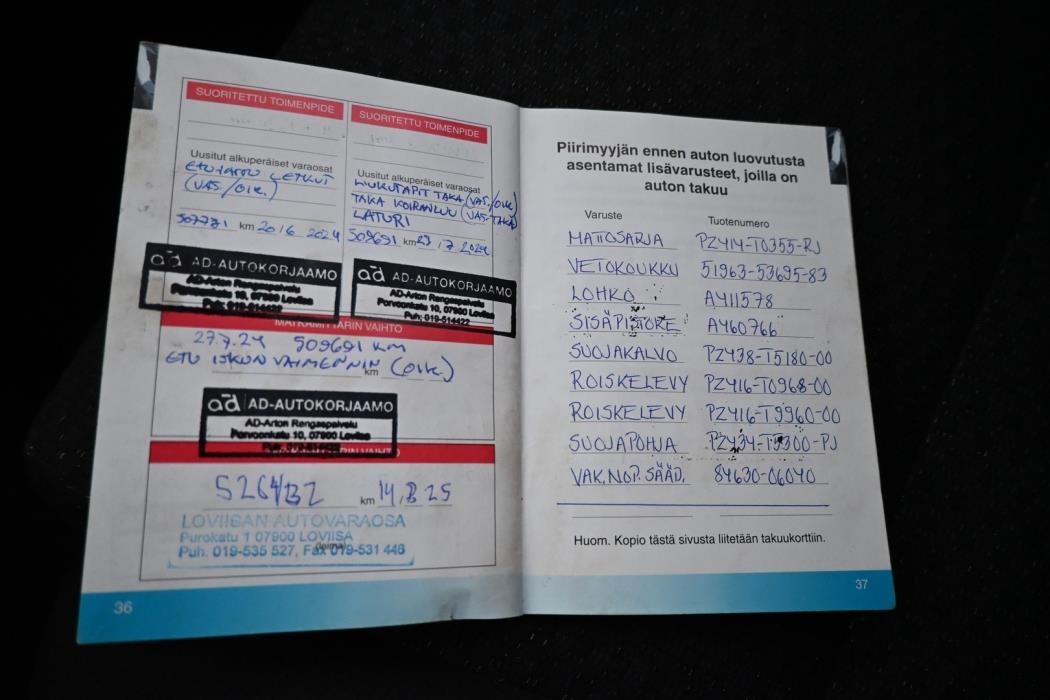 SUORITETTU TOIMENPIDE
Uusitut alkuperäiset varaosat
ETUJARRU LETKUT
(VAS./OIK.)
507771 km 20/6 2024
AD-AUTOKORJAAMO
AD-Arton Rengaspalvelu
Porvoonkatu 10, 07900 Loviisa
Puh: 019-514422
SUORITETTU TOIMENPIDE
Uusitut alkuperäiset varaosat
LIUKUTAPIT TAKA (VAS/OIK)
TAKA KOIRANLUU (VAS. TAKA)
LATURI
509691 km 27/7 2024
ad AD-AUTOKORJAAMO
AD-Arton Rengaspalvelu
Porvoonkatu 10, 07900 Loviisa
Puh: 019-514422
MATKAMITTARIN VAIHTO
27.7.24 509691 KM
ETU ISKUNVAIMENNIN (OIK.)
km
ad AD-AUTOKORJAAMO
AD-Arton Rengaspalvelu
Porvoonkatu 10, 07900 Loviisa
km
LOVIISAN AUTOVARAOSA
Purokatu 1 07900 LOVIISA
Puh. 019-535 527, Fax 019-531 446
36
Piirimyyjän ennen auton luovutusta
asentamat lisävarusteet, joilla on
auton takuu
Varuste Tuotenumero
MATTOSARJA PZ414-T0355-RJ
VETOKOUKKU 51963-53695-83
LOHKO A411578
SISÄPISTORE A460766
SUOJAKALVO PZ438-T5180-00
ROISKELEVY PZ416-T0968-00
ROISKELEVY PZ416-T9960-00
SUOJAPOHJA PZ434-T5300-PJ
VAK.NOP.SÄÄD. 84630-06040
Huom. Kopio tästä sivusta liitetään takuukorttiin.
37